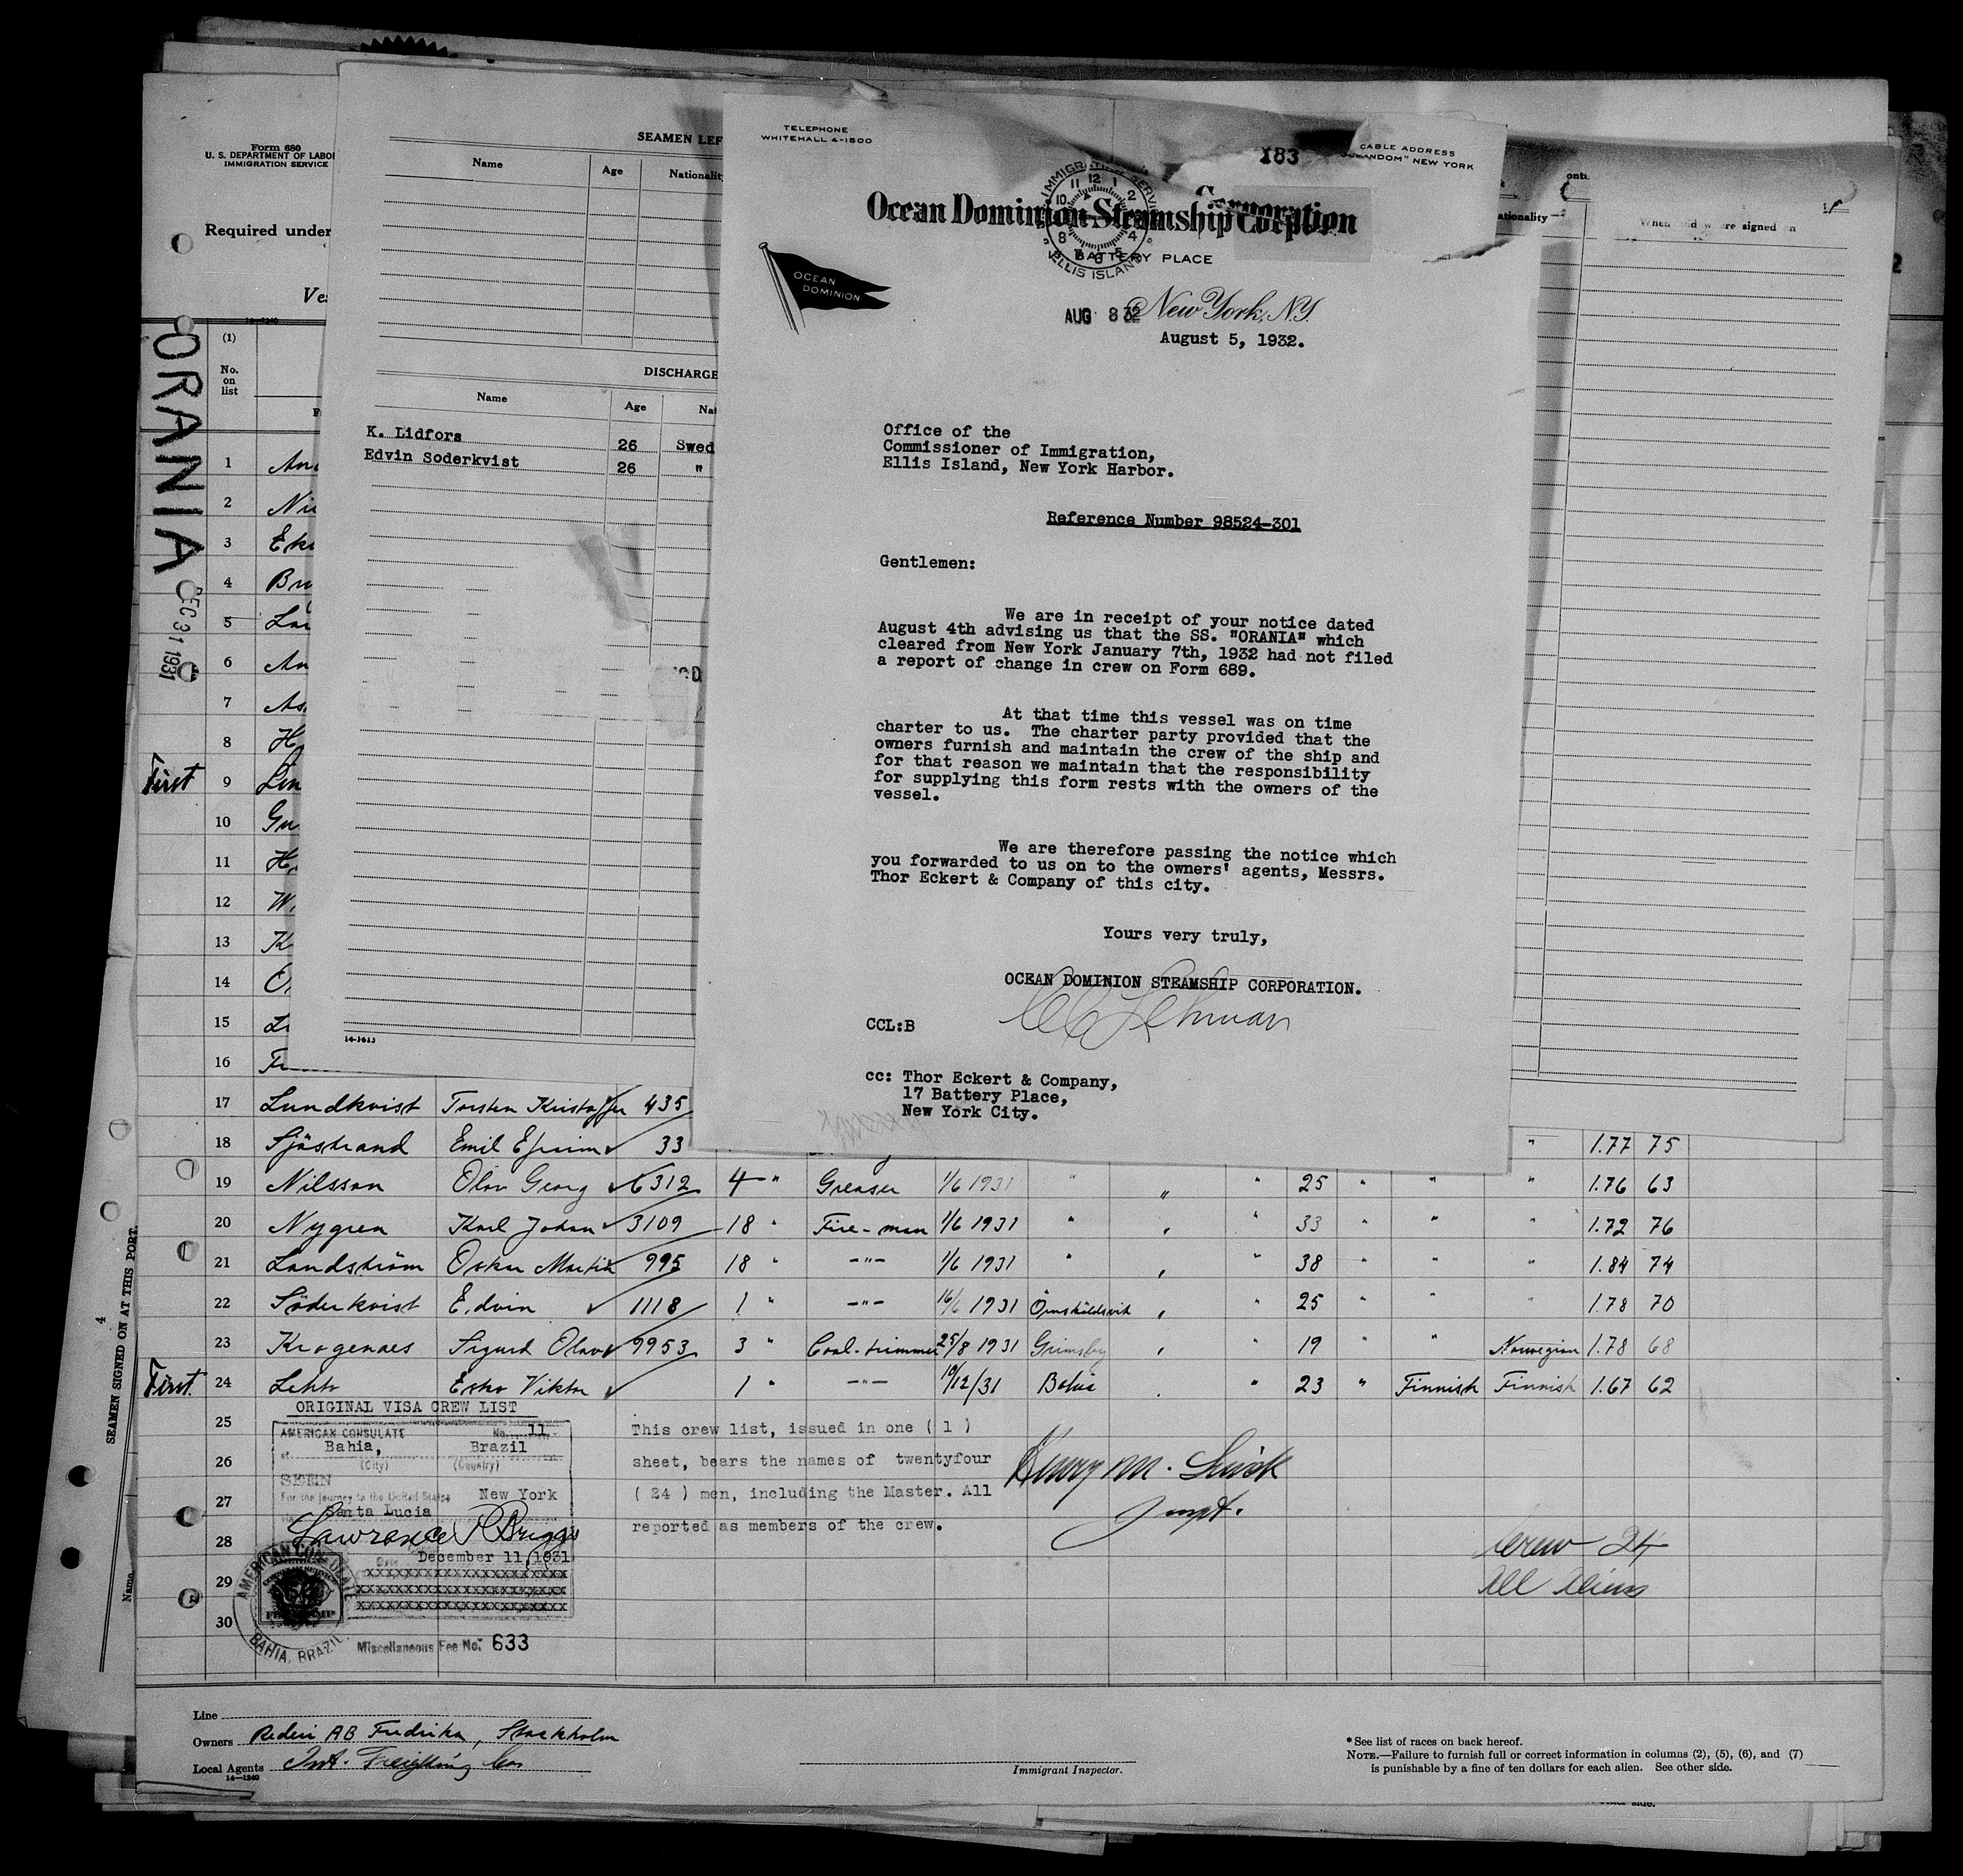 Form 680
U. S. DEPARTMENT OF LABO
IMMIGRATION SERVICE
Required under
Ves
14-1240
ORANIA
DEC 31 1931
(1)
No.
on
list
SEAMEN LEF
Name Age Nationality
DISCHARGE
Name Age Nat
K. Lidfors 26 Swed
Edvin Soderkvist 26 "
14-1613
TELEPHONE
WHITEHALL 4-1500
183
CABLE ADDRESS
"OCEANDOM" NEW YORK
Ocean Dominion Steamship Corporation
BATTERY PLACE
IMMIGRATION SERVICE
ELLIS ISLAND
OCEAN
DOMINION
AUG 8 32
New York, N.Y.
August 5, 1932.
Office of the
Commissioner of Immigration,
Ellis Island, New York Harbor.
Reference Number 98524-301
Gentlemen:
We are in receipt of your notice dated
August 4th advising us that the SS. "ORANIA" which
cleared from New York January 7th, 1932 had not filed
a report of change in crew on Form 689.
At that time this vessel was on time
charter to us. The charter party provided that the
owners furnish and maintain the crew of the ship and
for that reason we maintain that the responsibility
for supplying this form rests with the owners of the
vessel.
We are therefore passing the notice which
you forwarded to us on to the owners' agents, Messrs.
Thor Eckert & Company of this city.
Yours very truly,
OCEAN DOMINION STEAMSHIP CORPORATION.
CCLehman
CCL:B
cc: Thor Eckert & Company,
17 Battery Place,
New York City.
ationality
When and where signed on
1 An
2 Ni
3 Ek
4 Br
5 La
6 An
7 As
8 H
First 9 Lin
10 Gu
11 H
12 W
13 K
14 O
15 L
16 F
17 Lundkvist Torsten Kristoffer 435
18 Sjöstrand Emil Efraim 33 " 1.77 75
19 Nilsson Olov Georg 6312 4 " Greaser 1/6 1931 " " " 25 " " " 1.76 63
20 Nygren Karl Johan 3109 18 " Fire-man 1/6 1931 " " " 33 " " " 1.72 76
21 Landström Oskar Martin 995 18 " -"- 1/6 1931 " " " 38 " " " 1.84 74
22 Söderkvist Edvin 1118 1 " -"- 16/6 1931 Örnsköldsvik " " 25 " " " 1.78 70
23 Krogenaes Sigurd Olav 9953 3 " Coal-trimmer 25/8 1931 Grimsby " " 19 " Norwegian 1.78 68
First 24 Lehto Esko Viktor 1 " -"- 10/12/31 Bahia " " 23 " Finnish Finnish 1.67 62
25
26
27
28
29
30
ORIGINAL VISA CREW LIST
AMERICAN CONSULATE No. 11
at Bahia, Brazil
(City) (Country)
SEEN
For the journey to the United States New York
via Santa Lucia
Lawrence P Briggs
Date December 11, 1931
XXXXXXXXXXXXXXXXXXXXXXX
XXXXXXXXXXXXXXXXXXXXXXXX
XXXXXXXXXXXXXXXXXXXXXXXX
AMERICAN CONSULATE
BAHIA, BRAZIL
Miscellaneous Fee No. 633
This crew list, issued in one ( 1 )
sheet, bears the names of twentyfour
( 24 ) men, including the Master. All
reported as members of the crew.
Henry M.
Inspt.
Crew 24
All Aliens
SEAMEN SIGNED ON AT THIS PORT.
4
Name
Line
Owners Rederi AB Fredrika, Stockholm
Local Agents Int. Freighting Cor
14-1240
Immigrant Inspector.
*See list of races on back hereof.
NOTE.—Failure to furnish full or correct information in columns (2), (5), (6), and (7)
is punishable by a fine of ten dollars for each alien. See other side.